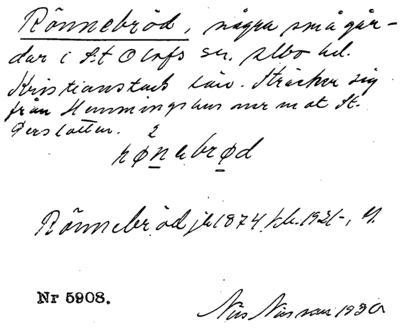 Rönnebröd, några små går-
dar i St Olofs sn. Albo hd.
Kristianstads län. Sträcker sig
från Hemmingshus ner mot St.
Perslotten.
rønebrød
Rönnebröd jb 1874, 1921-,
Nr 5908.
Nils Nilsson 1930